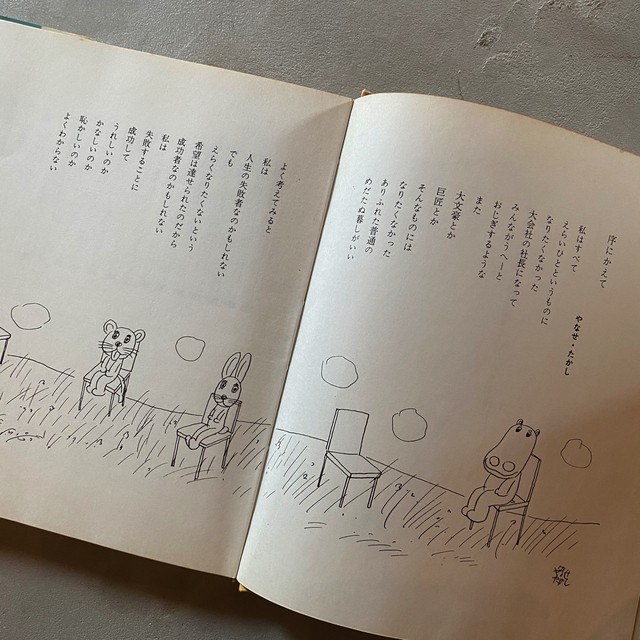 序にかえて
やなせ・たかし
私はすべて
えらいひとというものに
なりたくなかった
大会社の社長になって
みんながうへーと
おじぎするような
また
大文豪とか
巨匠とか
そんなものには
なりたくなかった
ありふれた普通の
めだたぬ暮しがいい
よく考えてみると
私は
人生の失敗者なのかもしれない
でも
えらくなりたくないという
希望は達せられたのだから
成功者なのかもしれない
私は
失敗することに
成功して
うれしいのか
かなしいのか
恥かしいのか
よくわからない